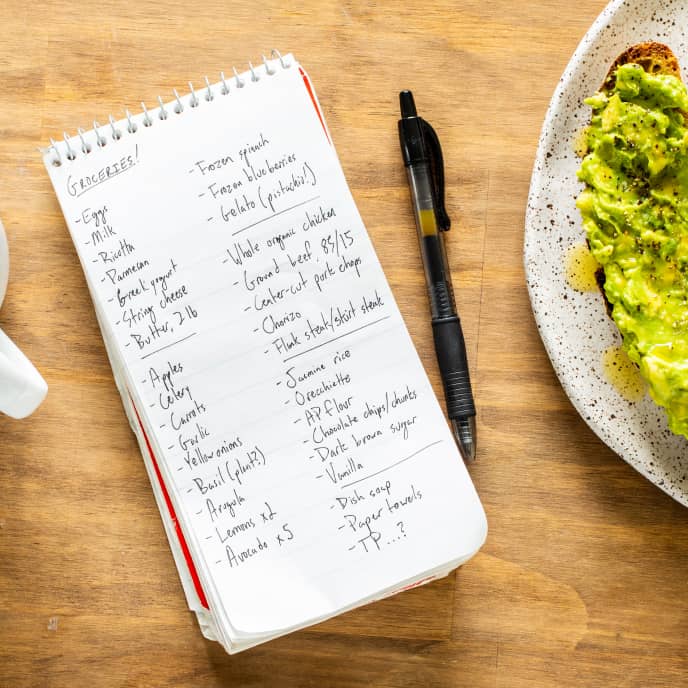 GROCERIES!
- Eggs
- Milk
- Ricotta
- Parmesan
- Greek yogurt
- String cheese
- Butter, 2 lb
- Apples
- Celery
- Carrots
- Garlic
- Yellow onions
- Basil (plant?)
- Arugula
- Lemons x2
- Avocado x5
- Frozen spinach
- Frozen blueberries
- Gelato (pistachio!)
- Whole organic chicken
- Ground beef, 85/15
- Center-cut pork chops
- Chorizo
- Flank steak/skirt steak
- Jasmine rice
- Orecchiette
- AP flour
- Chocolate chips/chunks
- Dark brown sugar
- Vanilla
- Dish soap
- Paper towels
- TP...?